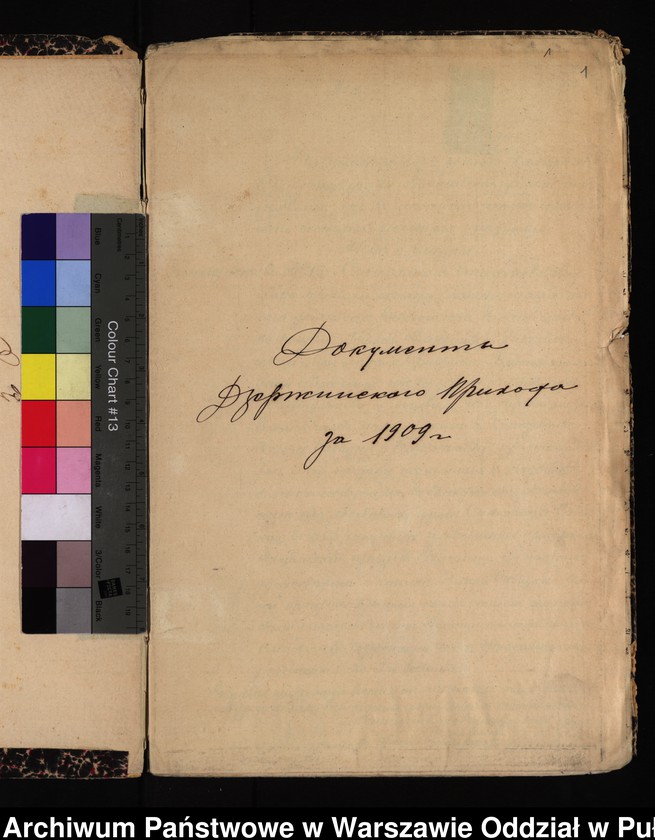 1
Документы
Дзержинскаго Прихода
за 1909 г
Colour Chart #13
Blue
Cyan
Green
Yellow
Red
Magenta
White
3/Color
Black
Centimetres
Archiwum Państwowe w Warszawie Oddział w Puł